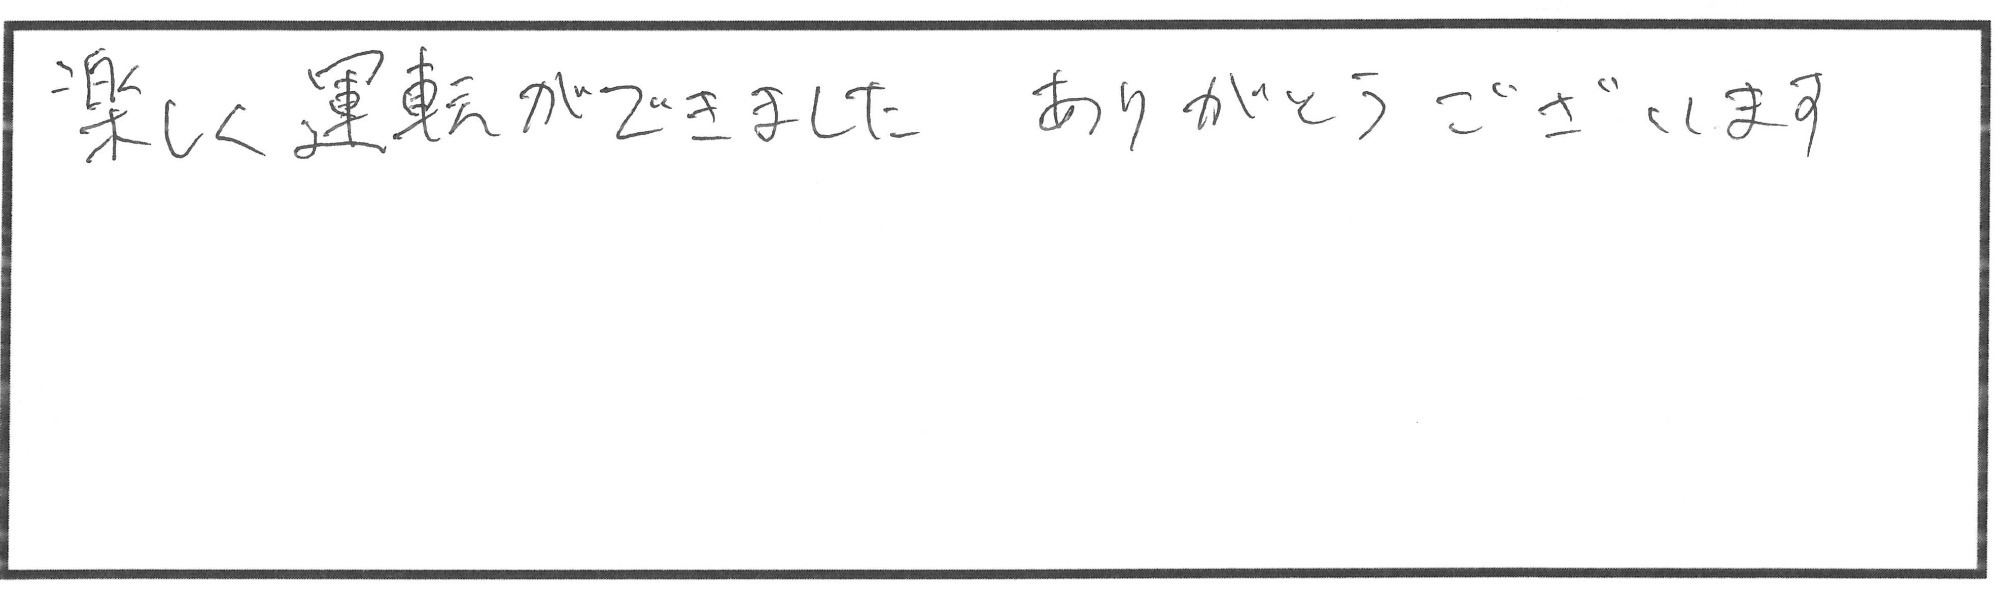 楽しく運転ができました　ありがとうございます